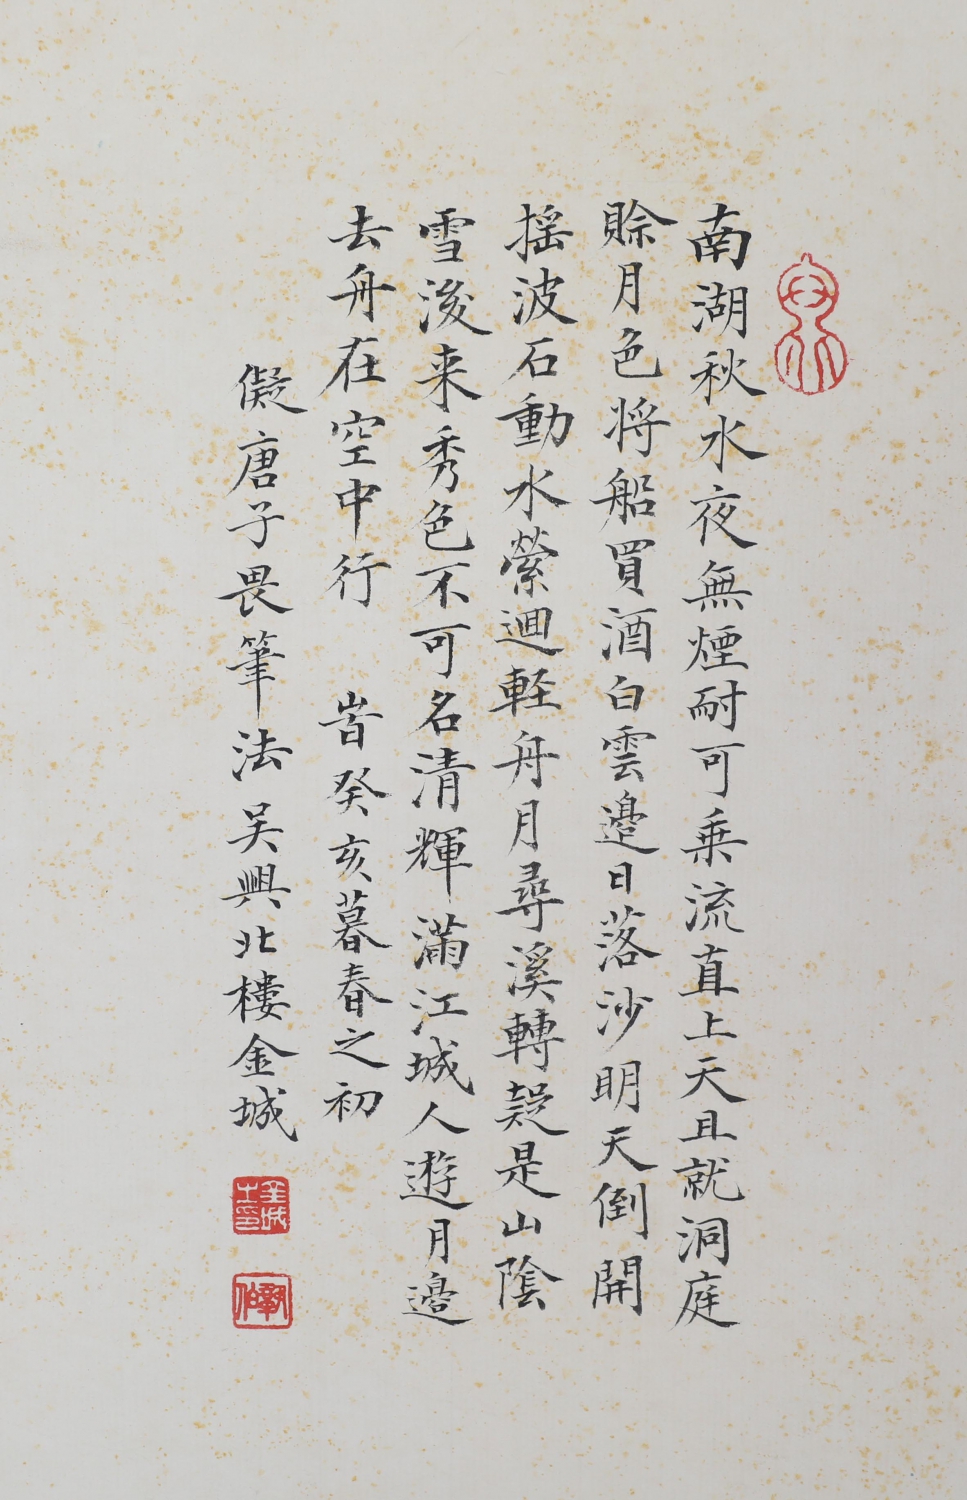 南湖秋水夜無煙耐可乗流直上天且就洞庭
賒月色将船買酒白雲邉日落沙明天倒開
揺波石動水縈迴軽舟月尋溪轉疑是山陰
雪後来秀色不可名清輝滿江城人遊月邉
去舟在空中行 旹癸亥暮春之初
儗唐子畏筆法吴興北樓金城